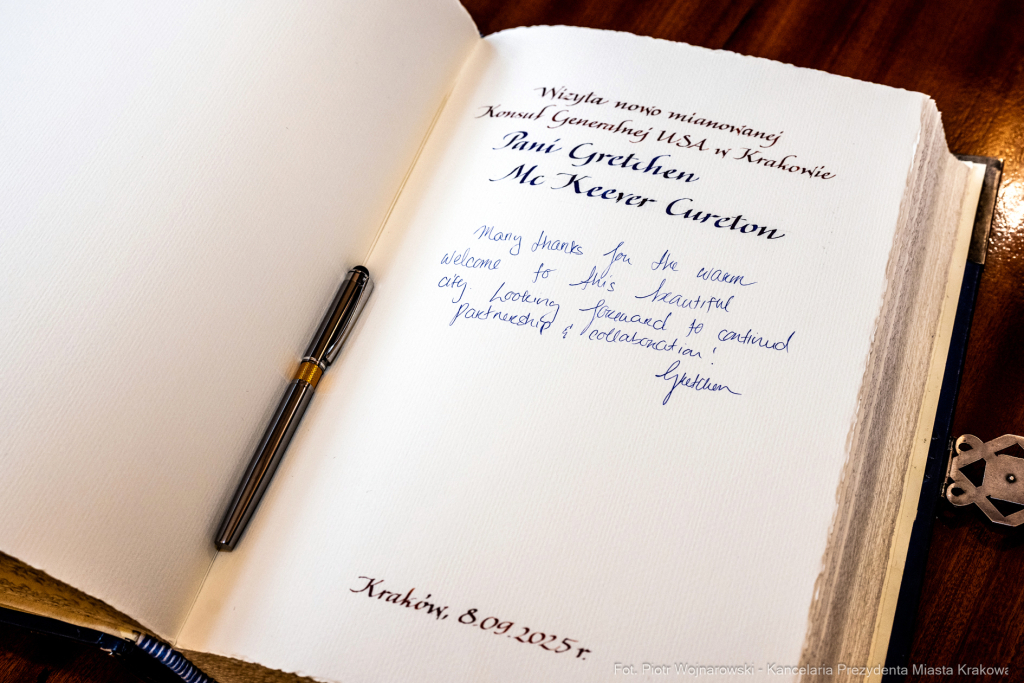 Wizyta nowo mianowanej
Konsul Generalnej USA w Krakowie
Pani Gretchen
Mc Keever Cureton
Many thanks for the warm
welcome to this beautiful
city. Looking forward to continued
partnership & collaboration!
Gretchen
Kraków, 8.09.2025 r.
Fot. Piotr Wojnarowski - Kancelaria Prezydenta Miasta Krakowa